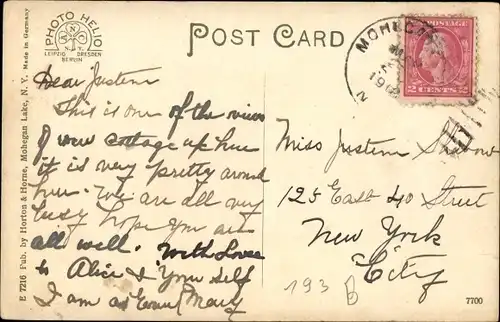 PHOTO HELIO
N.Y.
LEIPZIG DRESDEN
BERLIN
POST CARD
MOHEGAN
N
2 CENTS 2
Dear Justine
This is one of the views
of our cottage up here
it is very pretty around
here. We are all very
busy hope you are
all well. With Love
to Alice & Your self
I am as Ever Mary
Miss Justine
125 East 40 Street
New York
City
193 B
E 7216 Pub. by Horton & Horne, Mohegan Lake, N. Y. Made in Germany
7700